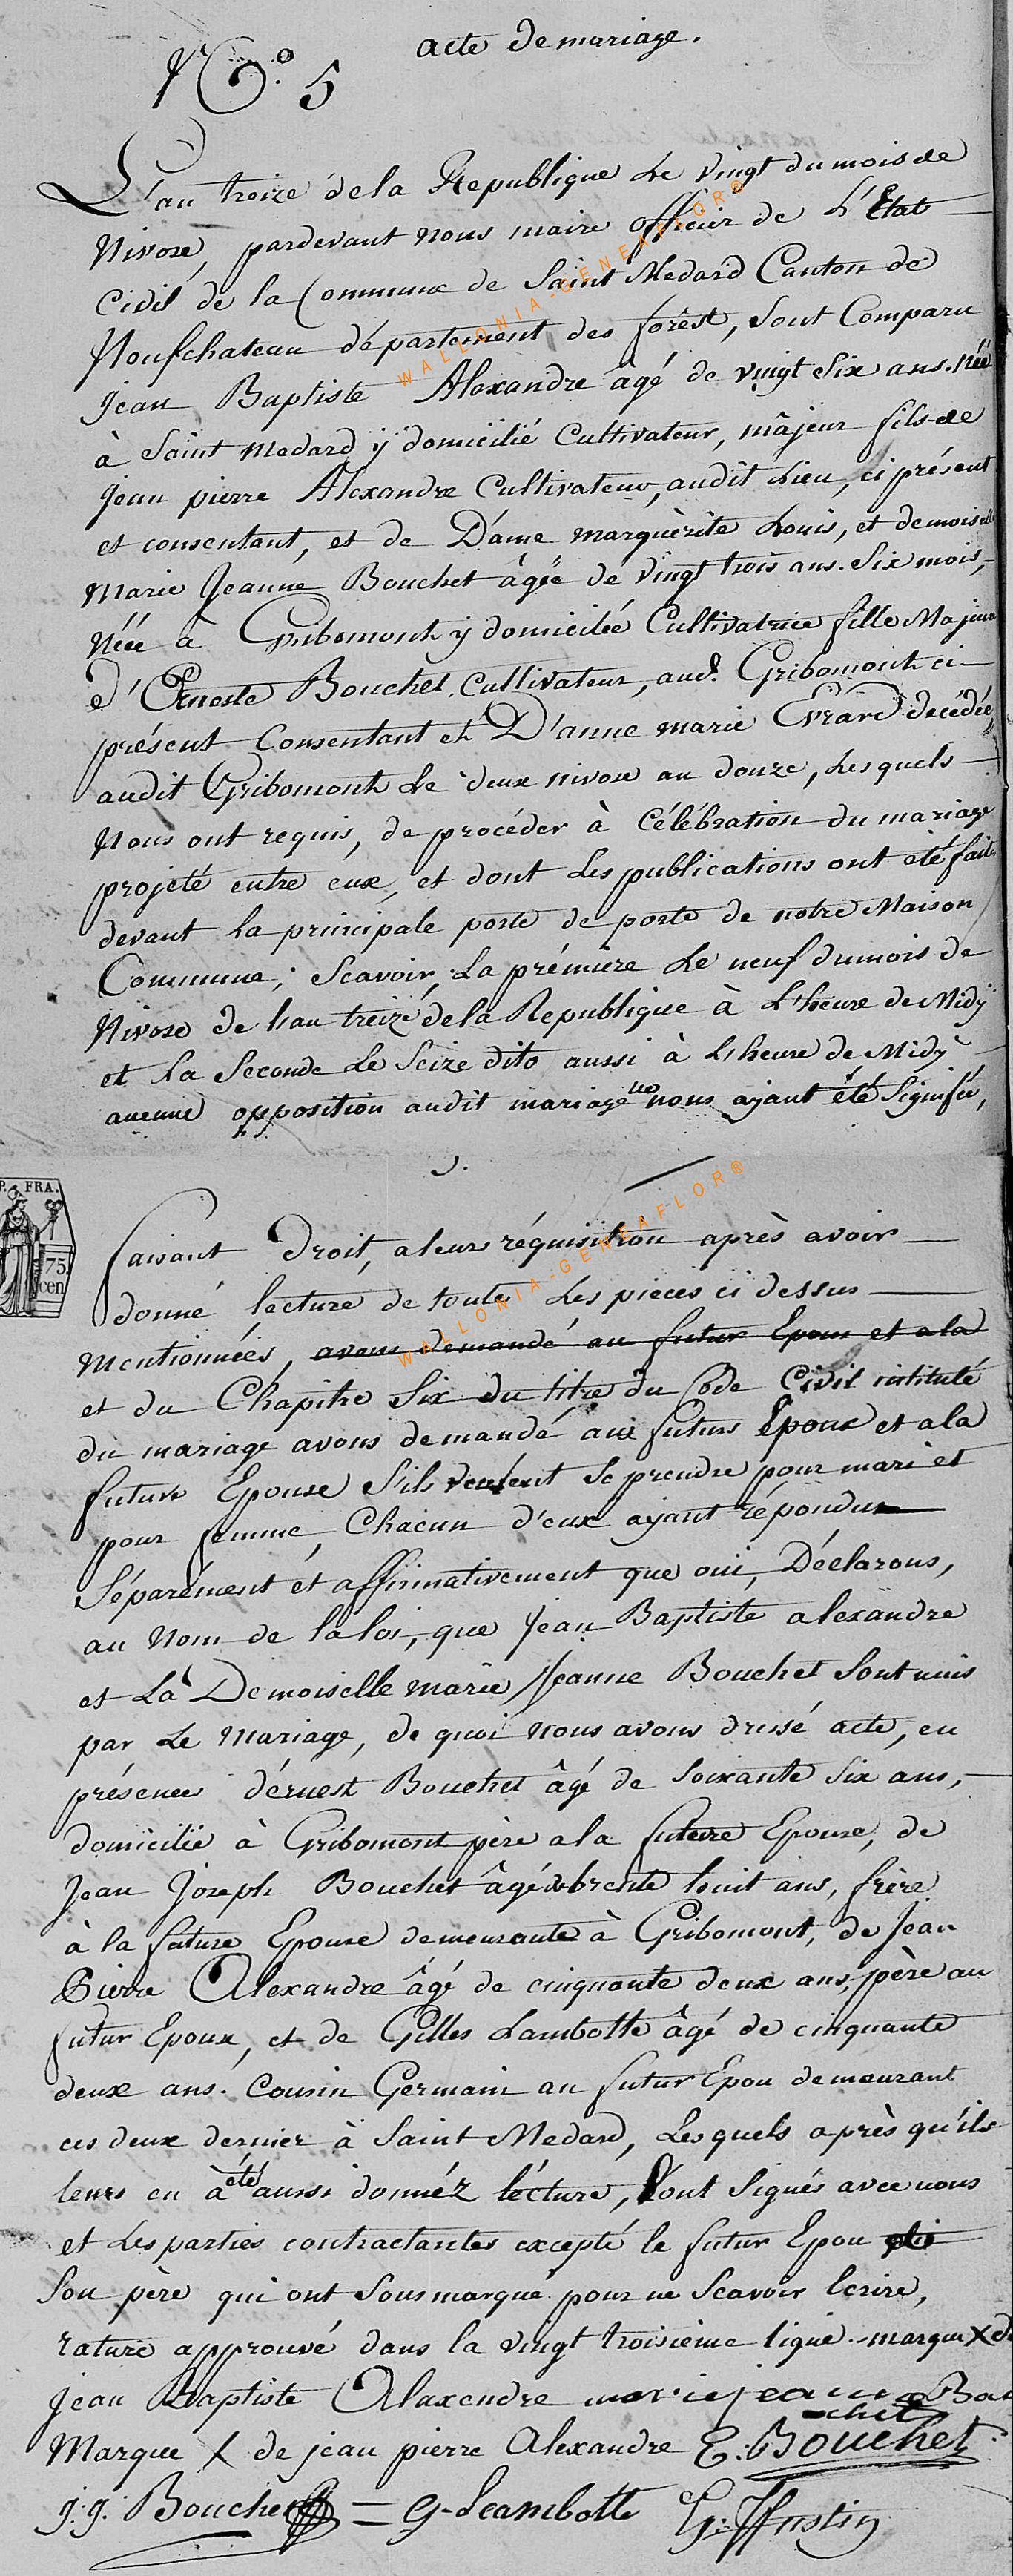 acte de mariage.
N.° 5
L'an treize de la Republique Le vingt du mois de
Nivose, pardevant nous maire officier de L'Etat
Civil de la Commune de Saint Medard Canton de
Noufchateau département des forêst, sont Comparu
Jean Baptiste Alexandre âgé de vingt six ans. née
à Saint Medard y domicilié Cultivateur, mâjeur fils de
Jean pierre Alexandre Cultivateur, audit Lieu, ci présent
et consentant, et de Dame marguèrite Louis, et demoiselle
Marie Jeanne Bouchet âgée de vingt trois ans. Six mois,
Néée à Gribomont y domiciliée Cultivatrice fille Majeure
d'Erneste Bouchet, Cultivateur, aud.t Gribomont ci
présent Consentant et D'anne marie Evrard decédée,
audit Gribomont Le deux nivose an douze, Lesquels
Nous ont requis, de procéder à Célébration du mariage
projeté entre eux, et dont Les publications ont été faites
devant la principale porte de porte de notre Maison
Commune; Scavoir, La prémière Le neuf du mois de
Nivose de l'an treize de la Republique à L'heure de Midÿ
et La Seconde Le Seize dito aussi à L'heure de Midÿ
aucune opposition audit mariage ne nous ajant été Signifée,
5.
P. FRA.
75
cen
faisant Droit, a leurs réquisition après avoir
donné lecture de toute Les pieces ci dessus
Mentionnées, avons demandé au futur Epoux et a la
et du Chapitre Six du titre du Code Civil intitulé
du mariage avons demandé aux futurs Epoux et a la
future Epouse S'ils veulent Se prendre pour mari et
pour femme, Chacun d'eux ajant répondu
Séparément et affirmativement que oui, Déclarons,
au Nom de la loi, que Jean Baptiste alexandre
et La Demoiselle marie Jeanne Bouchet Sont unis
par Le Mariage, de quoi nous avons dressé acte, en
présence dérnest Bouchet âgé de Soixante Six ans,
domicilié à Gribomont père a la future Epouse, de
Jean Joseph Bouchet âgé de trente huit ans, frère
à la future Epouse demeurante à Gribomont, de Jean
Pierre Alexandre âgé de cinquante deux ans, père au
futur Epoux, et de Gilles Lambotte âgé de cinquante
deux ans. Cousin Germain au futur Epou demeurant
ces deux dernier à Saint Medard, Lesquels après qu'ils
leurs en à été aussi donnéz lécture, l'ont Signés avec nous
et Les parties contractantes excepté le futur Epou
Son père qui ont Sousmarqué pour ne Scavoir Ecrire,
rature approuvé dans la vingt troisieme ligne. marque X de
Jean Baptiste Alaxendre marie jeanne Bou
chet
Marque X de jean pierre Alexandre E. Bouchet
J. J. Bouchet G-Leambotte
WALLONIA-GENEAFLOR®
WALLONIA-GENEAFLOR®